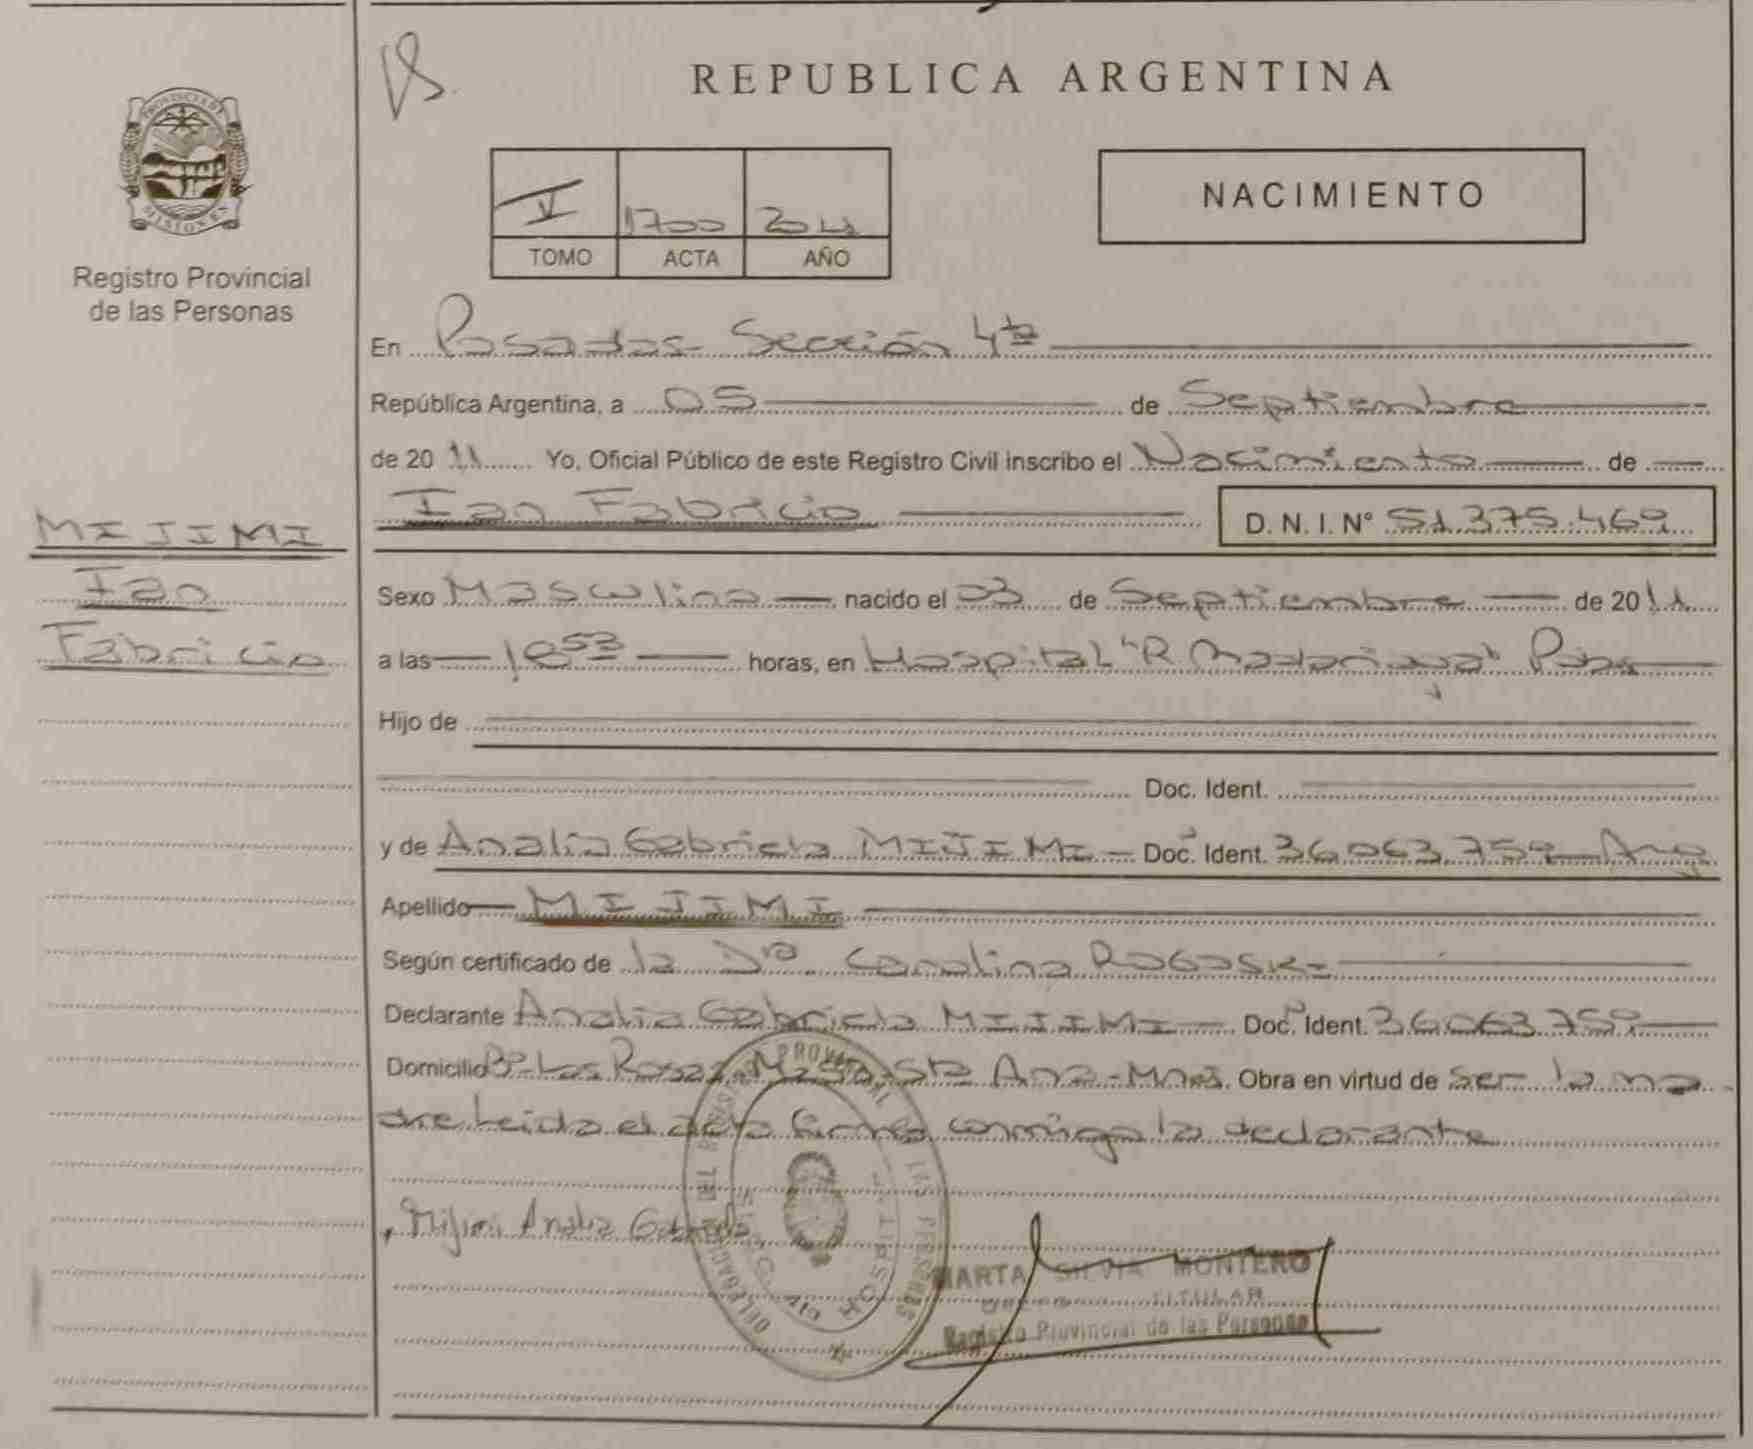 REPUBLICA ARGENTINA
PROVINCIA DE
MISIONES
Registro Provincial
de las Personas
V 1700 2011
TOMO ACTA AÑO
NACIMIENTO
En Posadas Sección 4ta
República Argentina, a 05 de Septiembre
de 2011 Yo, Oficial Público de este Registro Civil inscribo el Nacimiento de
Ian Fabricio D. N. I. N° 51.375.469
MIJIMI
Ian
Fabricio
Sexo Masculino nacido el 03 de Septiembre de 2011
a las 18 53 horas, en Hospital "R Madariaga" Pdas
Hijo de
Doc. Ident.
y de Analía Gabriela MIJIMI Doc. Ident. 36.063.759 Arg
Apellido MIJIMI
Según certificado de la Dra. Carolina
Declarante Analia Gabriela MIJIMI Doc. Ident. 36063759
Domicilio Bo Las Rosas Sta Ana - Mnes. Obra en virtud de ser la ma
dre Leida el acta firma conmigo la declarante
Mijimi Analia Gabriela
MARTA SILVIA MONTERO
TITULAR
Registro Provincial de las Personas